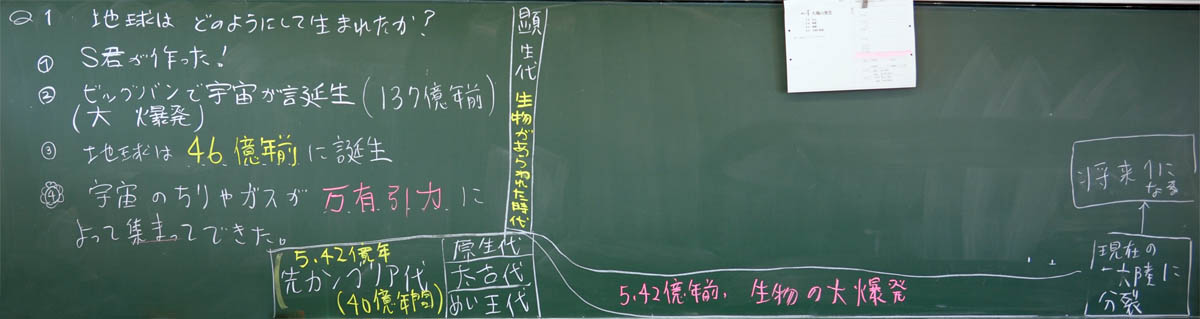 Q1 地球は どのようにして生まれたか?
① S君が作った!
② ビッグバンで宇宙が誕生(137億年前)
(大 爆発)
③ 地球は 46億年前に誕生
④ 宇宙のちりやガスが 万有引力に
よって集まってできた。
顕生代 生物があらわれた時代
5.42億年
先カンブリア代
(40億年間)
原生代
太古代
めい王代
5.42億年前, 生物の大爆発
将来1に
なる
現在の
六陸に
分裂